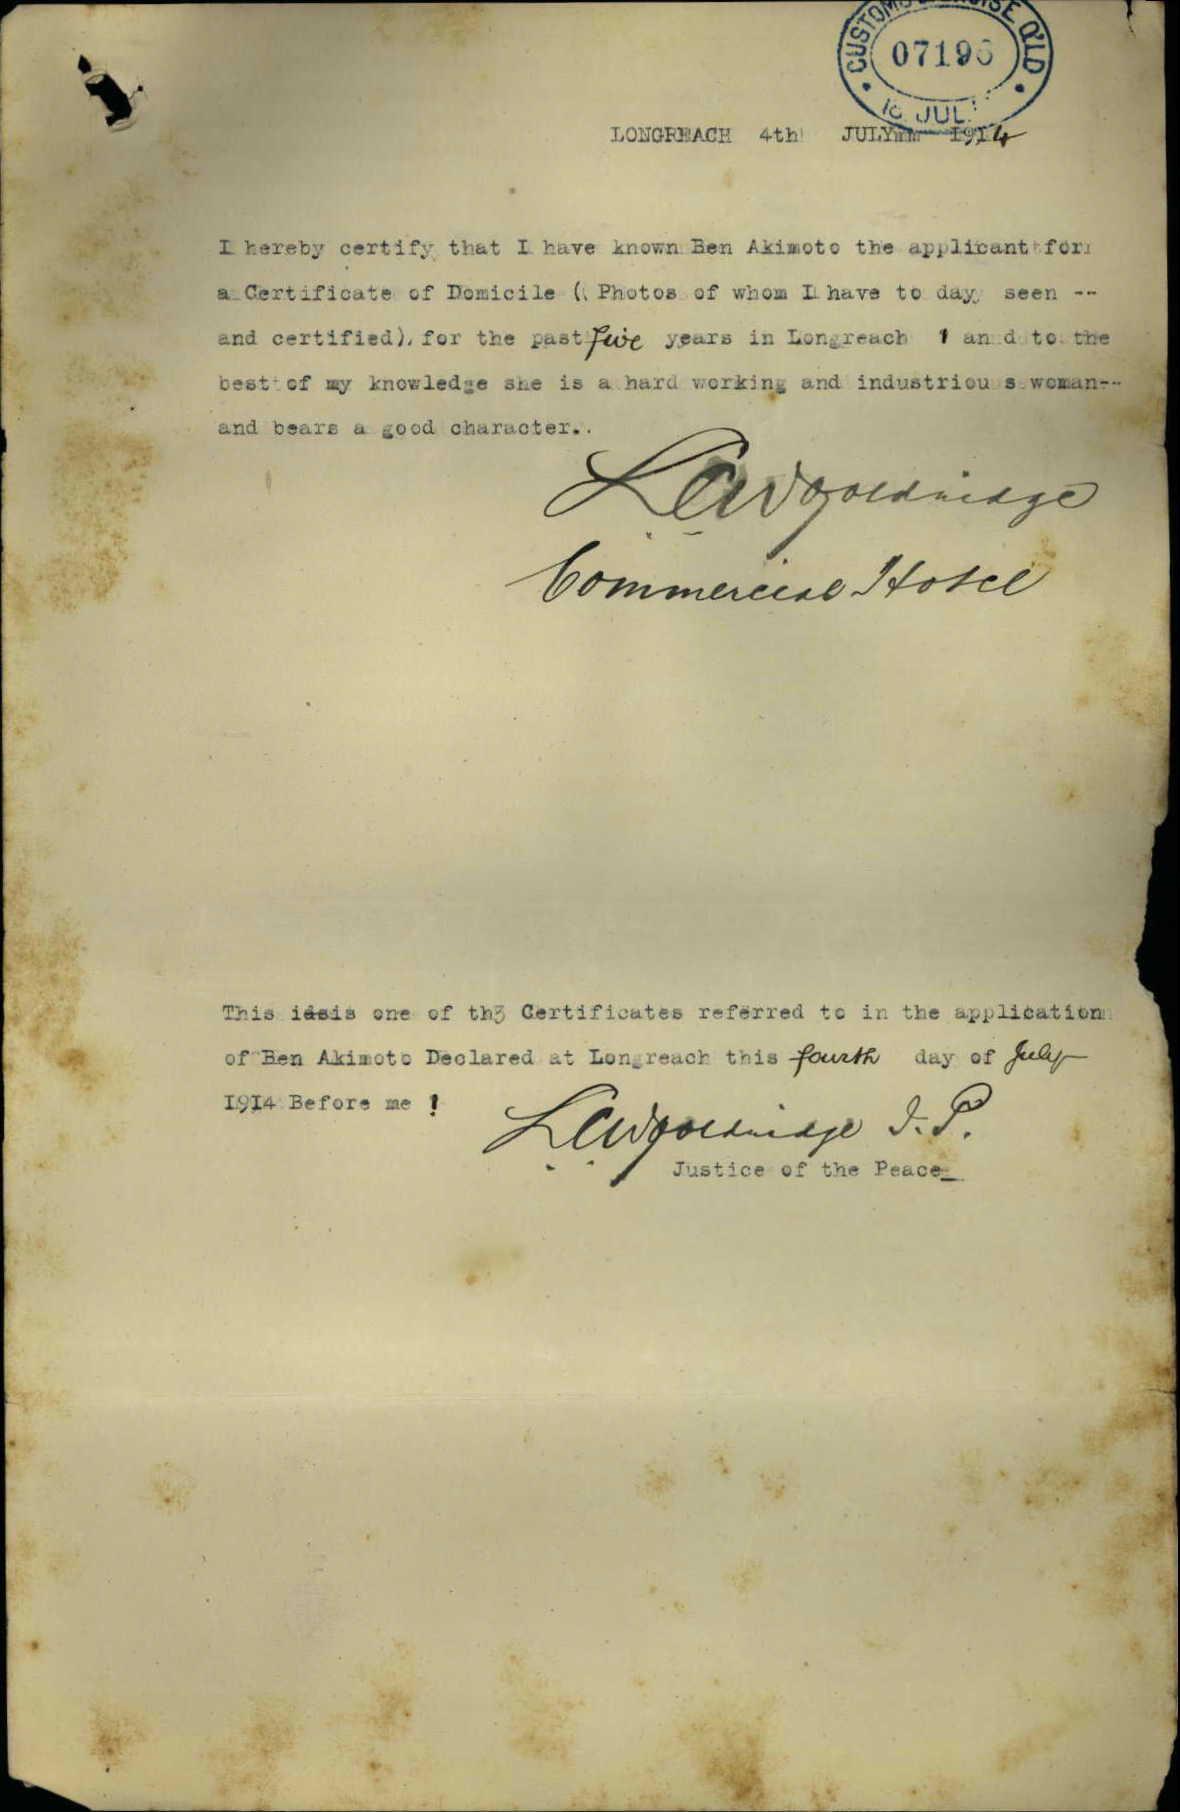 CUSTOMS EXCISE Q'LD
07196
16 JUL.
LONGREACH 4th JULYmm 1914
I hereby certify that I have known Ben Akimoto the applicant for
a Certificate of Domicile ( Photos of whom I have to day seen --
and certified), for the past five years in Longreach ! an d to the
best of my knowledge she is a hard working and industriou s woman--
and bears a good character..
L C Wooldridge
Commercial Hotel
This idsis one of th3 Certificates referred to in the application
of Ben Akimoto Declared at Longreach this fourth day of July
1914 Before me !
L C Wooldridge J.P.
Justice of the Peace_